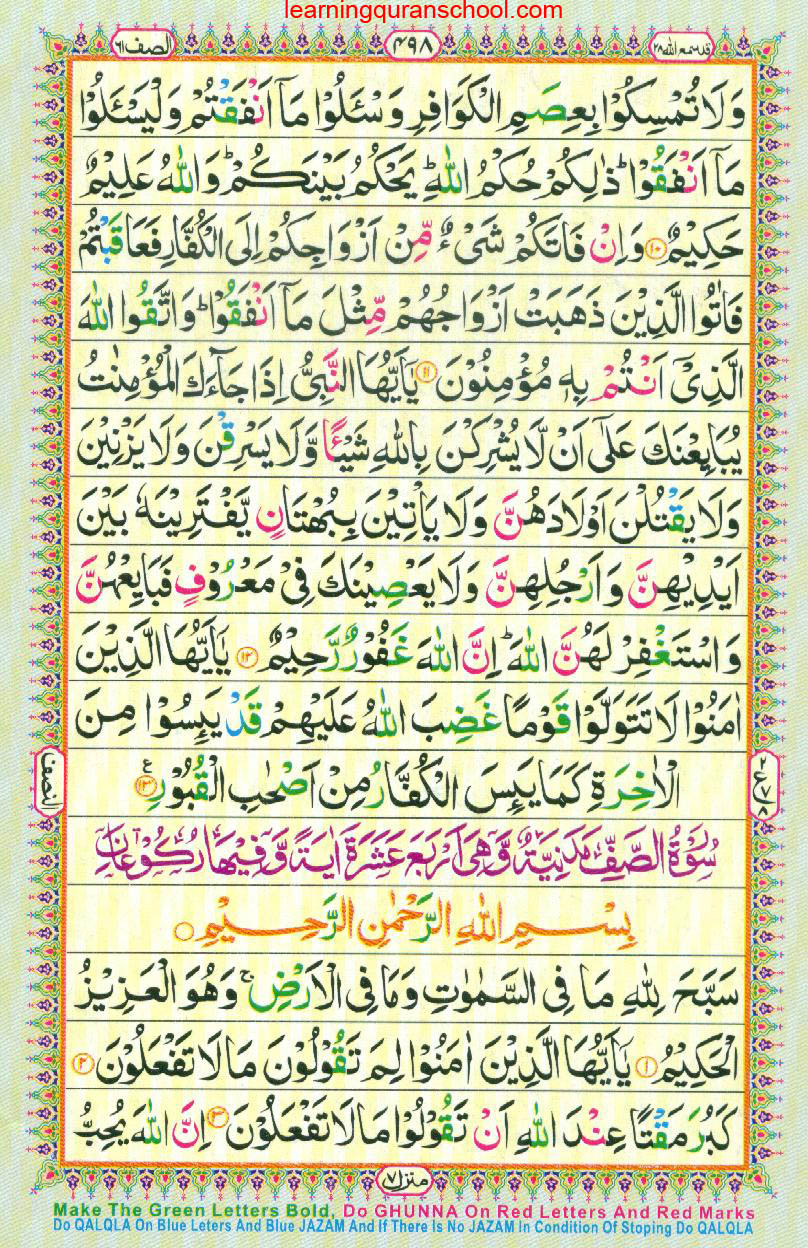 learningquranschool.com
قد سمع الله ٢٨
٤٩٨
الصف ٦١
وَلَا تُمْسِكُوْا بِعِصَمِ الْكَوَافِرِ وَسْـَٔلُوْا مَآ اَنْفَقْتُمْ وَلْيَسْـَٔلُوْا
مَآ اَنْفَقُوْاؕ ذٰلِكُمْ حُكْمُ اللّٰهِؕ يَحْكُمُ بَيْنَكُمْؕ وَاللّٰهُ عَلِيْمٌ
حَكِيْمٌ ۝۱۰ وَاِنْ فَاتَكُمْ شَيْءٌ مِّنْ اَزْوَاجِكُمْ اِلَى الْكُفَّارِ فَعَاقَبْتُمْ
فَاٰتُوا الَّذِيْنَ ذَهَبَتْ اَزْوَاجُهُمْ مِّثْلَ مَآ اَنْفَقُوْاؕ وَاتَّقُوا اللّٰهَ
الَّذِيْٓ اَنْتُمْ بِهٖ مُؤْمِنُوْنَ ۝۱۱ يٰٓاَيُّهَا النَّبِيُّ اِذَا جَآءَكَ الْمُؤْمِنٰتُ
يُبَايِعْنَكَ عَلٰٓى اَنْ لَّا يُشْرِكْنَ بِاللّٰهِ شَيْـًٔا وَّلَا يَسْرِقْنَ وَلَا يَزْنِيْنَ
وَلَا يَقْتُلْنَ اَوْلَادَهُنَّ وَلَا يَاْتِيْنَ بِبُهْتَانٍ يَّفْتَرِيْنَهٗ بَيْنَ
اَيْدِيْهِنَّ وَاَرْجُلِهِنَّ وَلَا يَعْصِيْنَكَ فِيْ مَعْرُوْفٍ فَبَايِعْهُنَّ
وَاسْتَغْفِرْ لَهُنَّ اللّٰهَؕ اِنَّ اللّٰهَ غَفُوْرٌ رَّحِيْمٌ ۝۱۲ يٰٓاَيُّهَا الَّذِيْنَ
اٰمَنُوْا لَا تَتَوَلَّوْا قَوْمًا غَضِبَ اللّٰهُ عَلَيْهِمْ قَدْ يَىِٕسُوْا مِنَ
الْاٰخِرَةِ كَمَا يَىِٕسَ الْكُفَّارُ مِنْ اَصْحٰبِ الْقُبُوْرِ ۝۱۳
سُوْرَةُ الصَّفِّ مَدَنِيَّةٌ وَّهِيَ اَرْبَعَ عَشَرَةَ اٰيَةً وَّفِيْهَا رُكُوْعَانِ
بِسْمِ اللّٰهِ الرَّحْمٰنِ الرَّحِيْمِ
سَبَّحَ لِلّٰهِ مَا فِي السَّمٰوٰتِ وَمَا فِي الْاَرْضِۚ وَهُوَ الْعَزِيْزُ
الْحَكِيْمُ ۝۱ يٰٓاَيُّهَا الَّذِيْنَ اٰمَنُوْا لِمَ تَقُوْلُوْنَ مَا لَا تَفْعَلُوْنَ ۝۲
كَبُرَ مَقْتًا عِنْدَ اللّٰهِ اَنْ تَقُوْلُوْا مَا لَا تَفْعَلُوْنَ ۝۳ اِنَّ اللّٰهَ يُحِبُّ
منزل ٧
Make The Green Letters Bold, Do GHUNNA On Red Letters And Red Marks
Do QALQLA On Blue Leters And Blue JAZAM And If There Is No JAZAM In Condition Of Stoping Do QALQLA